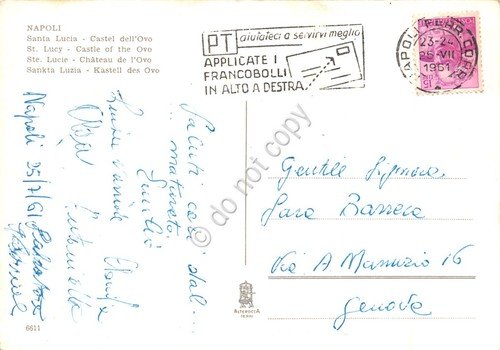 NAPOLI
Santa Lucia - Castel dell'Ovo
St. Lucy - Castle of the Ovo
Ste. Lucie - Château de l'Ovo
Sankta Luzia - Kastell des Ovo
PT aiutateci a servirvi meglio
APPLICATE I
FRANCOBOLLI
IN ALTO A DESTRA
NAPOLI FERR. CORR.
23-24
26-VII
1961
Saluti cari dal...
maturato
Antonietta
Napoli 25/7/61
Gentile Signora
Sara Barrera
Via A Manuzio 16
Genova
6611
ALTEROCCA
TERNI
do not copy